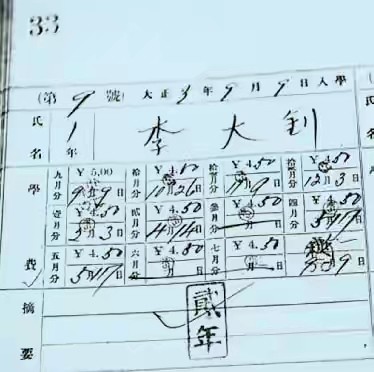 33
(第9號) 大正3年9月9日入學
氏名 1年 李大釗
學費
九月分 ¥5.00 9月9日 拾月分 ¥4.50 10月26日 ¥4.50 9日 ¥4.50 12月3日
壹月分 ¥4.50 2月3日 貳月分 ¥4.50 4月14日 參月分 ¥4.50 月日 四月分 ¥4.50 5月17日
五月分 ¥4.50 5月17日 六月分 ¥4.50 月日 七月分 ¥4.50 月日 9日
摘要 貳年